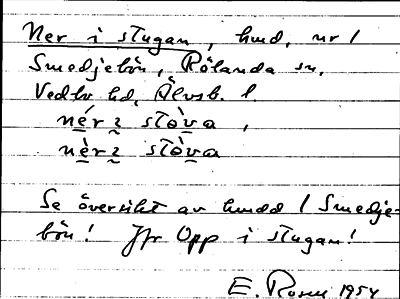 Ner i stugan, hmd, nr 1
Smedjebön, Rölanda sn,
Vedbo hd, Älvsb. l.
nérɿ stòva,
nèrɿ stòva
Se översikt av hmdd / Smedje-
bön! Jfr Opp i stugan!
E. Rosell 1954